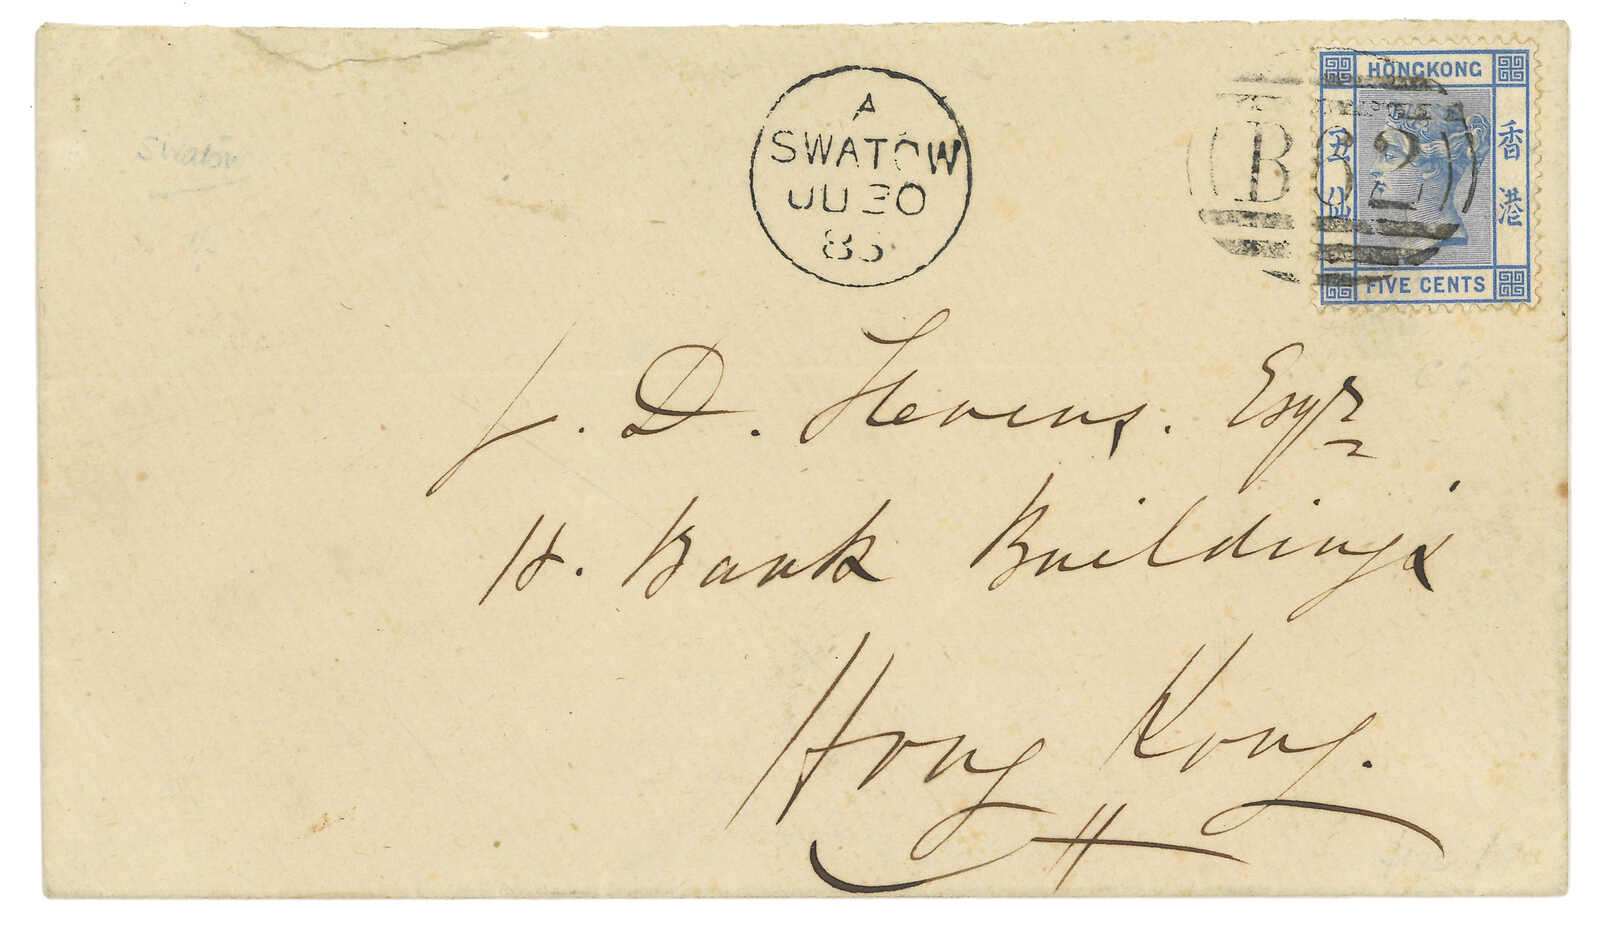 Swatow
A
SWATOW
JU 30
85
B62
HONGKONG
香港
五仙
FIVE CENTS
J. D. Stevens. Esqr
H. Bank Buildings
Hong Kong.